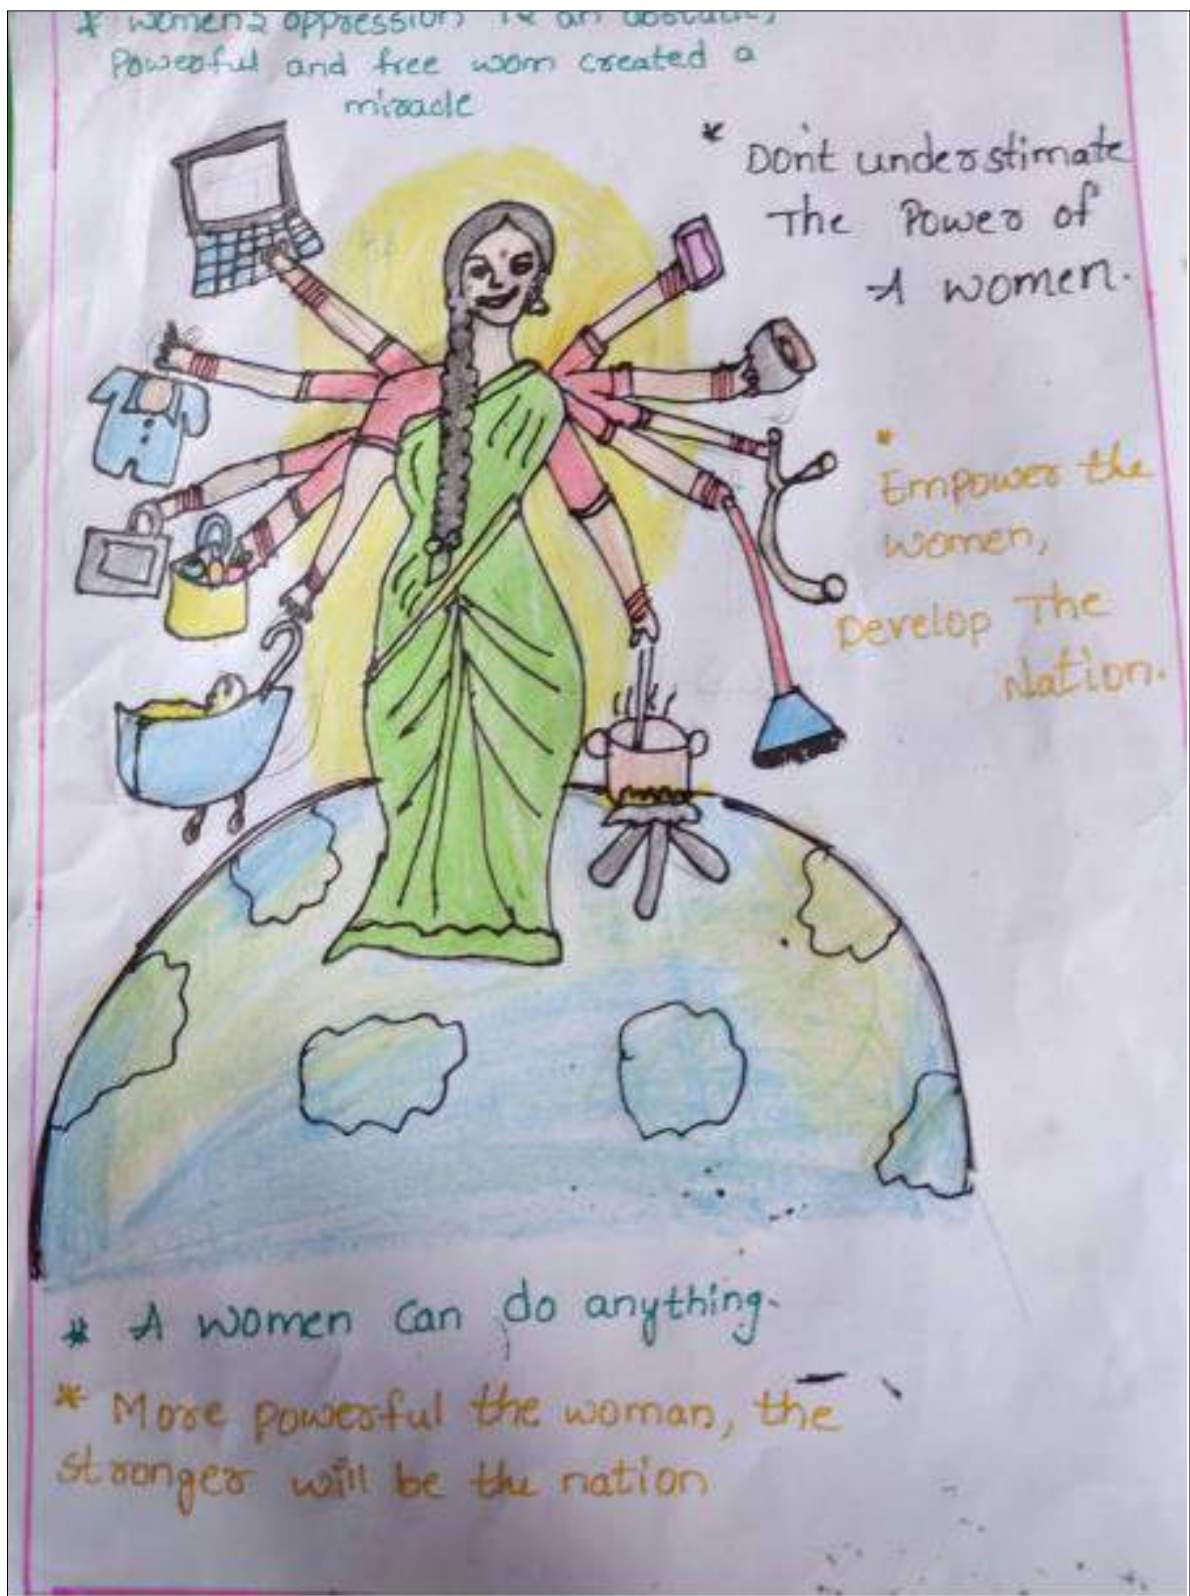 * women's oppression is an obstacle,
Powerful and free wom created a
miracle
* Don't understimate
The Power of
A women.
*
Empower the
women,
Develop The
Nation.
* A women can do anything.
* More powerful the woman, the
stronger will be the nation